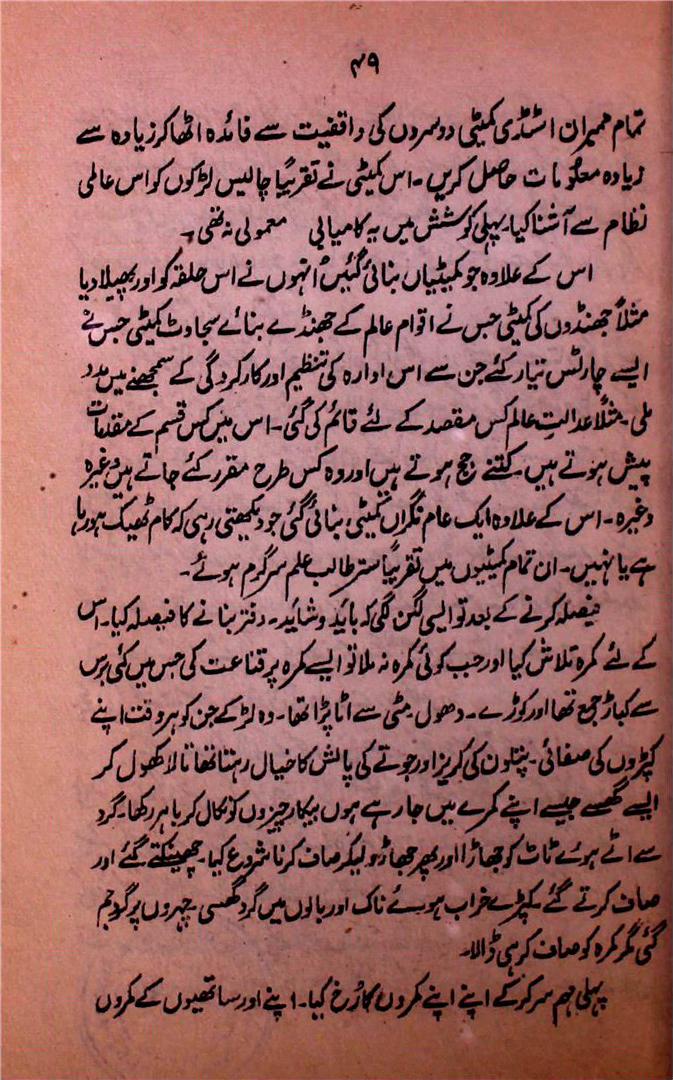 ۴۹
تمام ممبران اسٹڈی کمیٹی دوسروں کی واقفیت سے فائدہ اٹھا کر زیادہ سے
زیادہ معلومات حاصل کریں۔ اس کمیٹی نے تقریباً چالیس لڑکوں کو اس عالمی
نظام سے آشنا کیا۔ پہلی کوشش میں یہ کامیابی معمولی نہ تھی۔
اس کے علاوہ جو کمیٹیاں بنائی گئیں اُنہوں نے اس حلقہ کو اور پھیلا دیا
مثلاً جھنڈوں کی کمیٹی جس نے اقوام عالم کے جھنڈے بنائے سجاوٹ کمیٹی جس نے
ایسے چارٹس تیار کئے جن سے اس ادارہ کی تنظیم اور کارکردگی کے سمجھنے میں مدد
ملی۔ مثلاً عدالتِ عالم کس مقصد کے لئے قائم کی گئی۔ اس میں کس قسم کے مقدمات
پیش ہوتے ہیں۔ کتنے جج ہوتے ہیں اور وہ کس طرح مقرر کئے جاتے ہیں وغیرہ
وغیرہ۔ اس کے علاوہ ایک عام نگراں کمیٹی بنائی گئی جو دیکھتی رہی کہ کام ٹھیک ہو رہا
ہے یا نہیں۔ ان تمام کمیٹیوں میں تقریباً ستر طالب علم سرگرم ہوئے۔
فیصلہ کرنے کے بعد تو ایسی لگن لگی کہ باید و شاید۔ دفتر بنانے کا فیصلہ کیا۔ اس
کے لئے کمرہ تلاش کیا اور جب کوئی کمرہ نہ ملا تو ایسے کمرہ پر قناعت کی جس میں کئی برس
سے کباڑ جمع تھا اور کوڑے۔ دھول۔ مٹی سے اٹا پڑا تھا۔ وہ لڑکے جن کو ہر وقت اپنے
کپڑوں کی صفائی۔ پتلون کی کریز اور جوتے کی پالش کا خیال رہتا تھا تالا کھول کر
ایسے گھسے جیسے اپنے کمرے میں جا رہے ہوں بیکار چیزوں کو نکال کر باہر رکھا۔ گرد
سے اٹے ہوئے ٹاٹ کو جھاڑا اور پھر جھاڑو لیکر صاف کرنا شروع کیا۔ چھینکتے گئے اور
صاف کرتے گئے۔ کپڑے خراب ہوئے ناک اور بالوں میں گرد گھسی۔ چہروں پر گرد جم
گئی مگر کمرہ کو صاف کر ہی ڈالا۔
پہلی مہم سر کر کے اپنے اپنے کمروں کا رُخ کیا۔ اپنے اور ساتھیوں کے کمروں